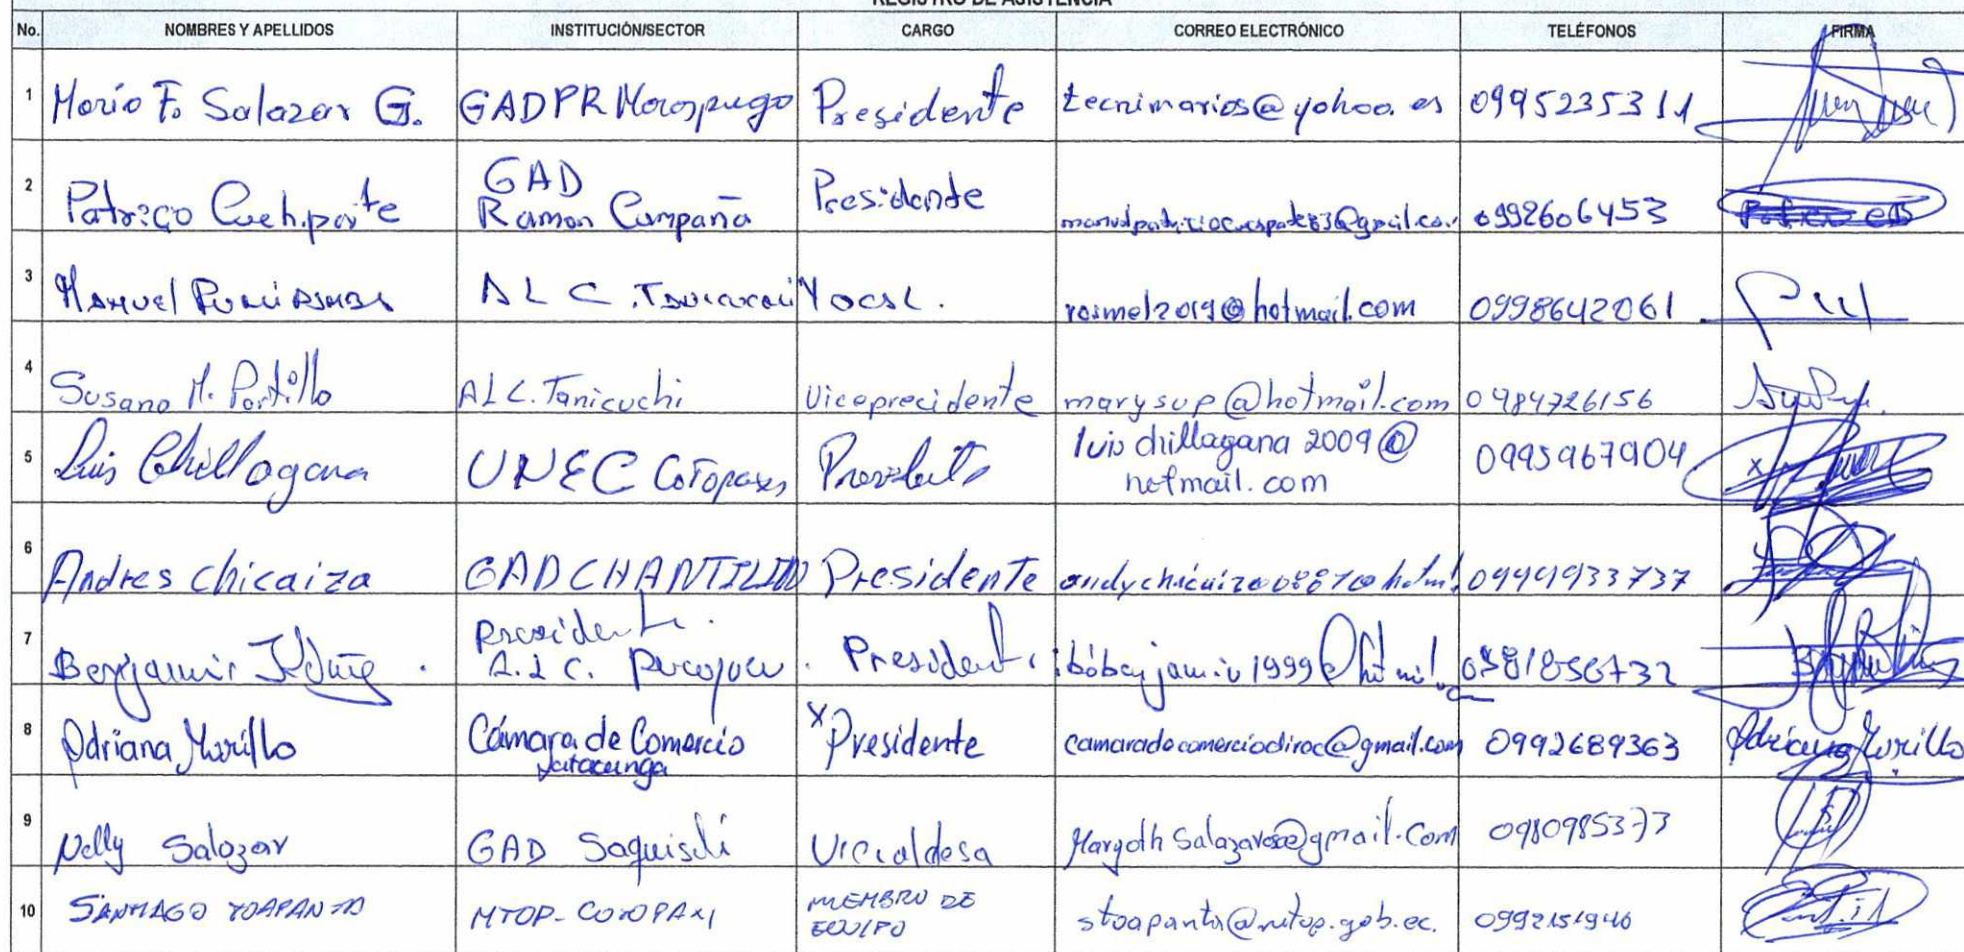 REGISTRO DE ASISTENCIA
No. NOMBRES Y APELLIDOS INSTITUCIÓN/SECTOR CARGO CORREO ELECTRÓNICO TELÉFONOS FIRMA
1 Mario F. Salazar G. GADPR Moraspungo Presidente tecnimarios@yahoo.es 0995235311
2 Patricio GAD
Ramon Campaña Presidente 0992606453
3 Manuel A L C Vocal. rosmel2019@hotmail.com 0998642061
4 Susana M. Portillo ALC. Tanicuchi Viceprecidente marysup@hotmail.com 0984726156
5 Luis Chillagana UNEC Cotopaxi Presidente luischillagana2009@
hotmail.com 0995967904
6 Andres chicaiza GAD CHANTILIN Presidente 0999933737
7 Benjamin Presidente.
A.L.C. President
8 Adriana Murillo Cámara de Comercio
Latacunga x Presidente camaradecomerciodirac@gmail.com 0992689363 Adriana Murillo
9 Nelly Salazar GAD Saquisilí Vicialdesa 0980985373
10 SANTIAGO TOAPANTA MTOP-COTOPAXI MIEMBRO DE
EQUIPO stoapanta@mtop.gob.ec. 0992151946